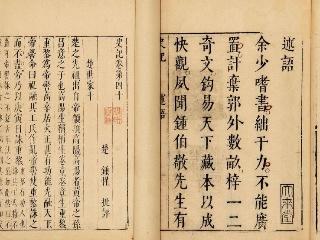 述語
余少嗜書絀于力不能廣
置計葉郭外數畝梓一二
奇文鈞易天下藏本以成
快觀夙聞鍾伯敬先生有
大來堂
史記 述語
史記卷第四十
楚 鍾惺 批評
楚世家十
楚之先祖出自帝顓頊高陽高陽者黃帝之孫
昌意之子也高陽生稱稱生卷章卷章生重黎
重黎為帝嚳高辛居火正甚有功能光融天下
帝嚳命曰祝融共工氏作亂帝嚳使重黎誅之
而不盡帝乃以庚寅日誅重黎